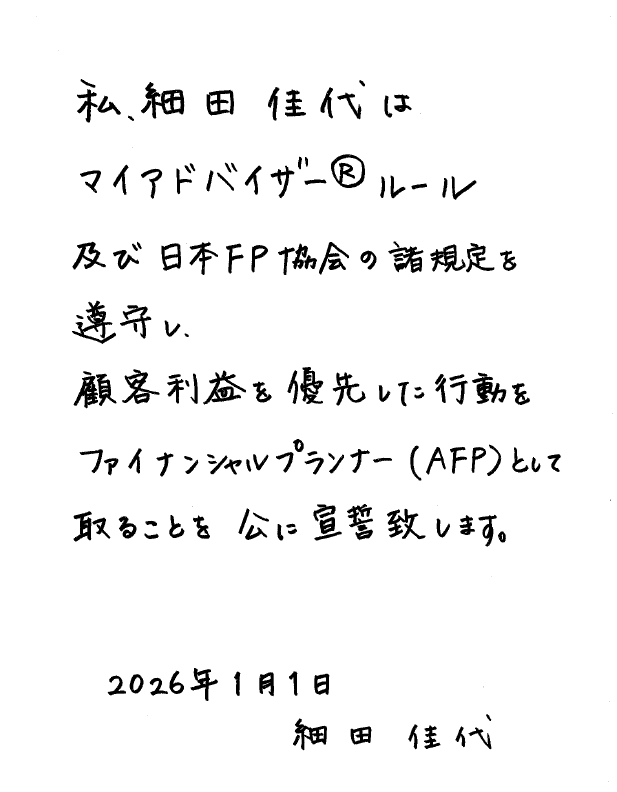 私、細田 佳代は
マイアドバイザー®ルール
及び日本FP協会の諸規定を
遵守し、
顧客利益を優先した行動を
ファイナンシャルプランナー(AFP)として
取ることを公に宣誓致します。
2026年1月1日
細田 佳代